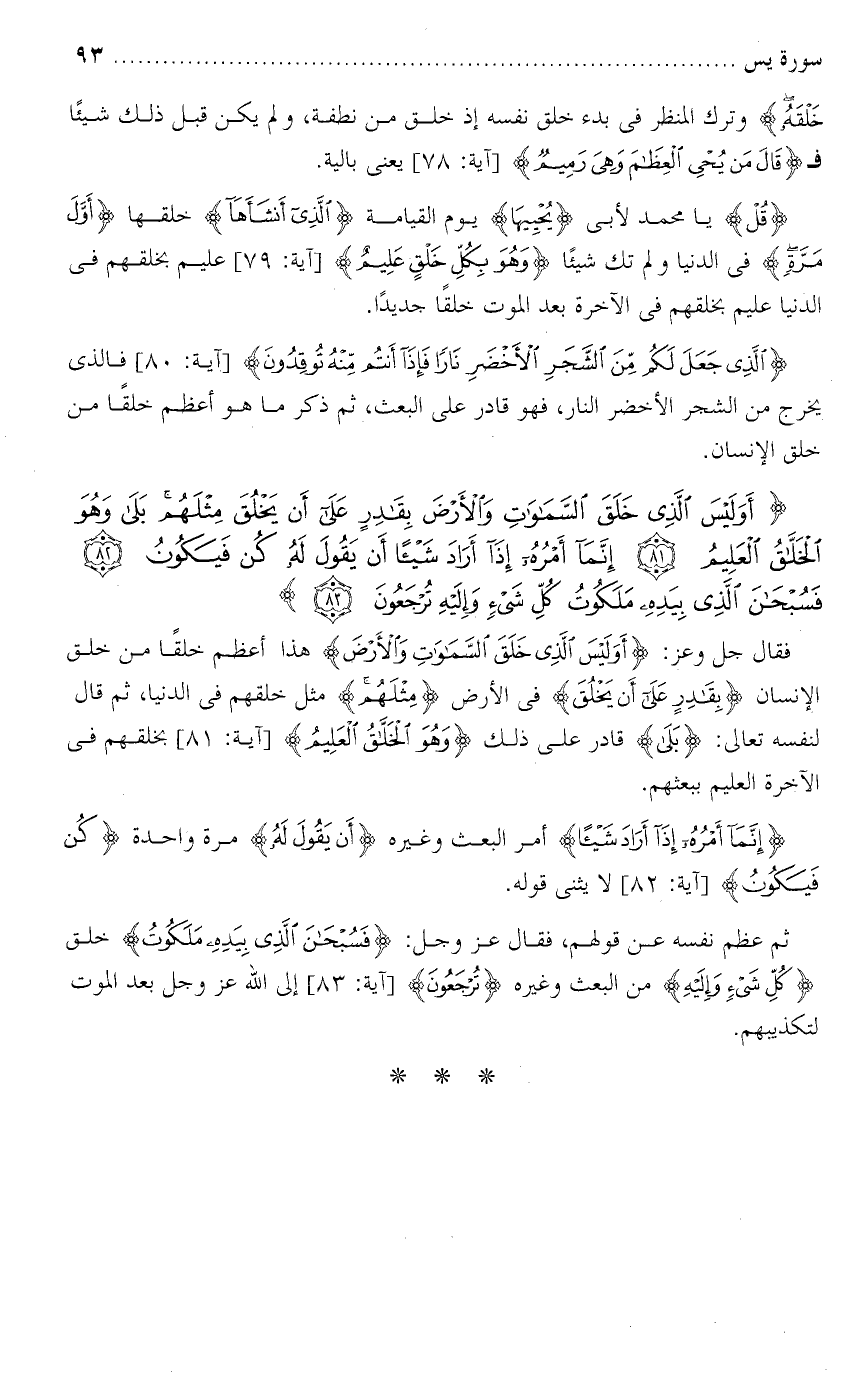 سورة يس ............................................................ ٩٣
خَلْقَهُۥ﴾ وترك المنظر فى بدء خلق نفسه إذ خلق من نطفة، ولم يكن قبل ذلك شيئًا
فـ ﴿قَالَ مَن يُحْىِ ٱلْعِظَٰمَ وَهِىَ رَمِيمٌ﴾ [آية: ٧٨] يعنى بالية.
﴿قُلْ﴾ يا محمد لأبى ﴿يُحْيِيهَا﴾ يوم القيامة ﴿ٱلَّذِىٓ أَنشَأَهَآ﴾ خلقها ﴿أَوَّلَ
مَرَّةٍۖ﴾ فى الدنيا ولم تك شيئًا ﴿وَهُوَ بِكُلِّ خَلْقٍ عَلِيمٌ﴾ [آية: ٧٩] عليم بخلقهم فى
الدنيا عليم بخلقهم فى الآخرة بعد الموت خلقًا جديدًا.
﴿ٱلَّذِى جَعَلَ لَكُم مِّنَ ٱلشَّجَرِ ٱلْأَخْضَرِ نَارًا فَإِذَآ أَنتُم مِّنْهُ تُوقِدُونَ﴾ [آية: ٨٠] فالذى
يخرج من الشجر الأخضر النار، فهو قادر على البعث، ثم ذكر ما هو أعظم خلقًا من
خلق الإنسان.
﴿ أَوَلَيْسَ ٱلَّذِى خَلَقَ ٱلسَّمَٰوَٰتِ وَٱلْأَرْضَ بِقَٰدِرٍ عَلَىٰٓ أَن يَخْلُقَ مِثْلَهُمۚ بَلَىٰ وَهُوَ
ٱلْخَلَّٰقُ ٱلْعَلِيمُ ٨١ إِنَّمَآ أَمْرُهُۥٓ إِذَآ أَرَادَ شَيْـًٔا أَن يَقُولَ لَهُۥ كُن فَيَكُونُ ٨٢
فَسُبْحَٰنَ ٱلَّذِى بِيَدِهِۦ مَلَكُوتُ كُلِّ شَىْءٍ وَإِلَيْهِ تُرْجَعُونَ ٨٣ ﴾
فقال جل وعز: ﴿أَوَلَيْسَ ٱلَّذِى خَلَقَ ٱلسَّمَٰوَٰتِ وَٱلْأَرْضَ﴾ هذا أعظم خلقًا من خلق
الإنسان ﴿بِقَٰدِرٍ عَلَىٰٓ أَن يَخْلُقَ﴾ فى الأرض ﴿مِثْلَهُمۚ﴾ مثل خلقهم فى الدنيا، ثم قال
لنفسه تعالى: ﴿بَلَىٰ﴾ قادر على ذلك ﴿وَهُوَ ٱلْخَلَّٰقُ ٱلْعَلِيمُ﴾ [آية: ٨١] بخلقهم فى
الآخرة العليم ببعثهم.
﴿إِنَّمَآ أَمْرُهُۥٓ إِذَآ أَرَادَ شَيْـًٔا﴾ أمر البعث وغيره ﴿أَن يَقُولَ لَهُۥ﴾ مرة واحدة ﴿كُن
فَيَكُونُ﴾ [آية: ٨٢] لا يثنى قوله.
ثم عظم نفسه عن قولهم، فقال عز وجل: ﴿فَسُبْحَٰنَ ٱلَّذِى بِيَدِهِۦ مَلَكُوتُ﴾ خلق
﴿كُلِّ شَىْءٍ وَإِلَيْهِ﴾ من البعث وغيره ﴿تُرْجَعُونَ﴾ [آية: ٨٣] إلى الله عز وجل بعد الموت
لتكذيبهم.
* * *